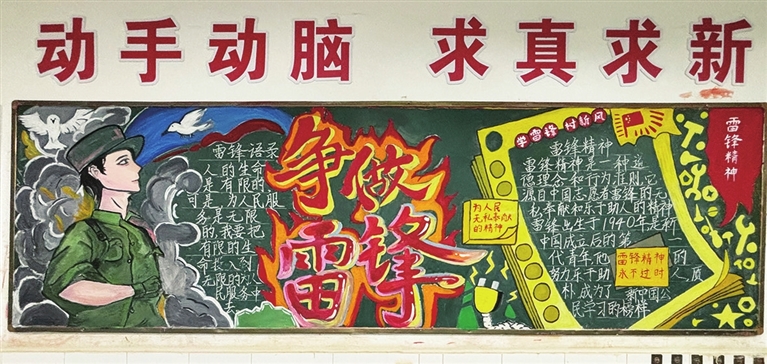 动手动脑 求真求新
雷锋语录
人的生命
是有限的
可是为人民服
务是无限
的,我要把
有限的生
命投入到
无限的为
人民服务中
去
争做
雷锋
学雷锋 树新风
雷锋精神
雷锋精神是一种道
德理念和行为准则它
源自中国志愿者雷锋的无
私奉献和乐于助人的精神
雷锋出生于1940年是新
中国成立后的第一
代青年他 的
努力乐于助 人
朴成为了 新中国公
民学习的榜样
为人民
无私奉献
的精神
雷锋精神
永不过时
雷锋精神